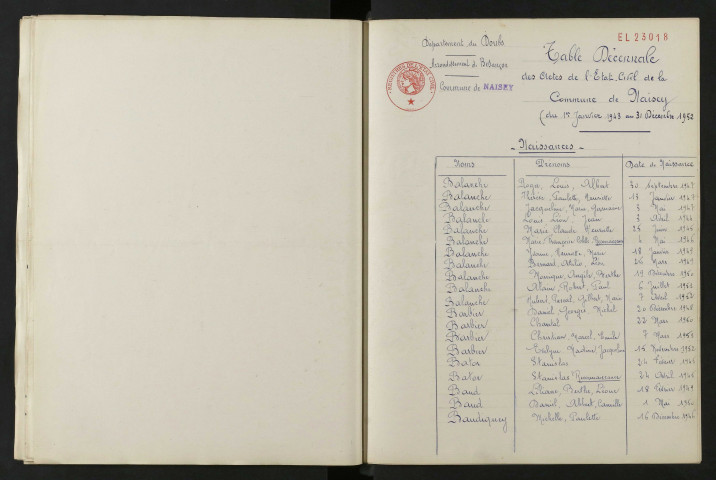 EL 23018
Département du Doubs
Arrondissement de Besançon
Commune de NAISEY
Table Décennale
des Actes de l'Etat Civil de la
Commune de Naisey
(du 1er Janvier 1943 au 31 Décembre 1952
- Naissances -
Noms Prénoms Date de Naissance
Balanche Louis, Albert 30 Septembre 1947
Balanche Paulette, Henriette 18 Janvier 1947
Balanche Jacqueline, Marie, 3 Mai 1947
Balanche Louis Léon, Jean 3 Avril 1944
Balanche Marie Claude Henriette 25 Juin
Balanche Marie, Françoise Reconnaissance 4 Mai 1946
Balanche Henriette, Marie 18 Janvier 1949
Balanche Bernard, Léon 26 Mars 1949
Balanche Monique, Angèle, Berthe 19 Décembre 1950
Balanche Alain, Robert, Paul 6 Juillet
Balanche Hubert, Pascal, Gilbert, Marie 7 Avril
Barbier Daniel Georges Michel 20 Décembre 1948
Barbier Chantal 22 Mars 1950
Barbier Christian, Marcel, 7 Mars 1951
Barbier Evelyne, Martine Jacqueline 15 Novembre 1952
Bator Stanislas 24 Février
Bator Stanislas Reconnaissance 24 Avril
Baud Liliane, Berthe, 18 Février 1949
Baud Daniel, Albert, Camille 1 Mai 1950
Baudiquey Michelle, Paulette 16 Décembre 1946